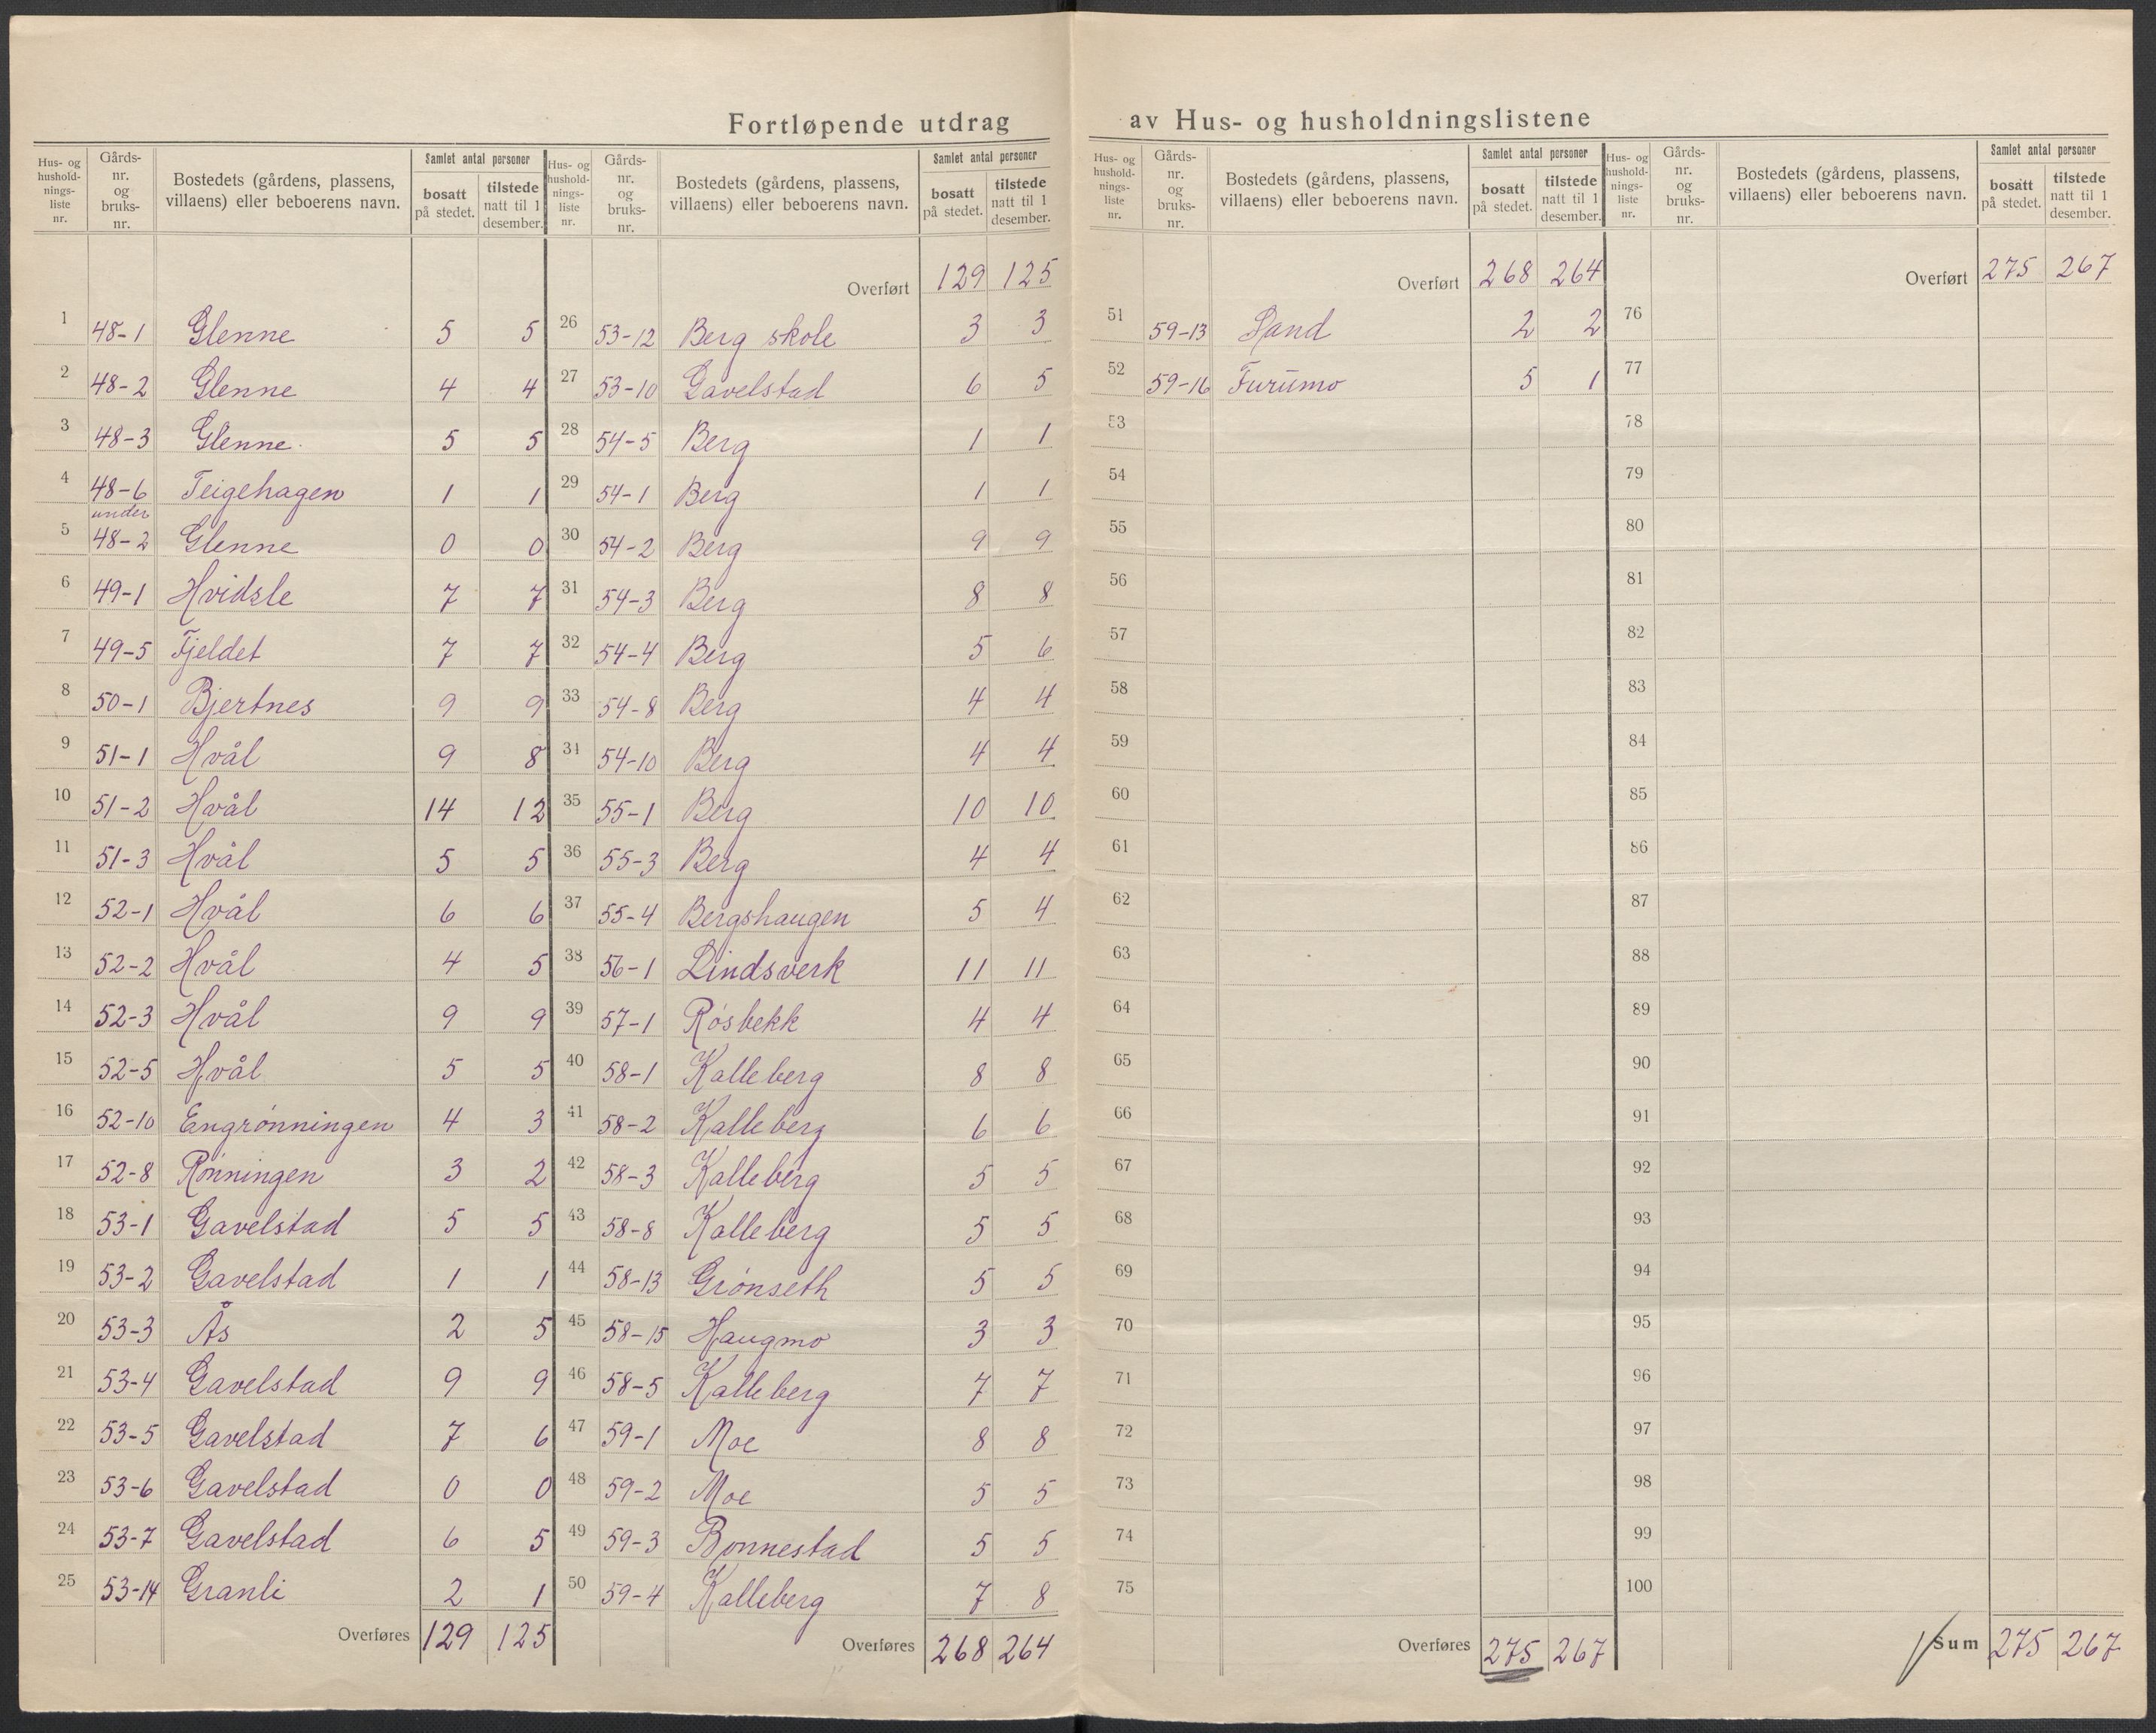 Fortløpende utdrag av Hus- og husholdningslistene
Hus- og husholdnings-liste nr. | Gårds-nr. og bruks-nr. | Bostedets (gårdens, plassens, villaens) eller beboerens navn. | Samlet antal personer | bosatt på stedet. | tilstede natt til 1 desember.
1 48-1 Glenne 5 5
2 48-2 Glenne 4 4
3 48-3 Glenne 5 5
4 48-6 Teigehagen 1 1
5 under 48-2 Glenne 0 0
6 49-1 Hvidsle 7 7
7 49-5 Fjeldet 7 7
8 50-1 Bjertnes 9 9
9 51-1 Hvål 9 8
10 51-2 Hvål 14 12
11 51-3 Hvål 5 5
12 52-1 Hvål 6 6
13 52-2 Hvål 4 5
14 52-3 Hvål 9 9
15 52-5 Hvål 5 5
16 52-10 Engrønningen 4 3
17 52-8 Rønningen 3 2
18 53-1 Gavelstad 5 5
19 53-2 Gavelstad 1 1
20 53-3 Ås 2 5
21 53-4 Gavelstad 9 9
22 53-5 Gavelstad 7 6
23 53-6 Gavelstad 0 0
24 53-7 Gavelstad 6 5
25 53-14 Granli 2 1
Overføres 129 125
Hus- og husholdnings-liste nr. | Gårds-nr. og bruks-nr. | Bostedets (gårdens, plassens, villaens) eller beboerens navn. | Samlet antal personer | bosatt på stedet. | tilstede natt til 1 desember.
Overført 129 125
26 53-12 Berg skole 3 3
27 53-10 Gavelstad 6 5
28 54-5 Berg 1 1
29 54-1 Berg 1 1
30 54-2 Berg 9 9
31 54-3 Berg 8 8
32 54-4 Berg 5 6
33 54-8 Berg 4 4
34 54-10 Berg 4 4
35 55-1 Berg 10 10
36 55-3 Berg 4 4
37 55-4 Bergshaugen 5 4
38 56-1 Lindsverk 11 11
39 57-1 Røsbekk 4 4
40 58-1 Kalleberg 8 8
41 58-2 Kalleberg 6 6
42 58-3 Kalleberg 5 5
43 58-8 Kalleberg 5 5
44 58-13 Grønseth 5 5
45 58-15 Haugmo 3 3
46 58-5 Kalleberg 7 7
47 59-1 Moe 8 8
48 59-2 Moe 5 5
49 59-3 Bonnestad 5 5
50 59-4 Kalleberg 7 8
Overføres 268 264
Hus- og husholdnings-liste nr. | Gårds-nr. og bruks-nr. | Bostedets (gårdens, plassens, villaens) eller beboerens navn. | Samlet antal personer | bosatt på stedet. | tilstede natt til 1 desember.
Overført 268 264
51 59-13 Sand 2 2
52 59-16 Furumo 5 1
53
54
55
56
57
58
59
60
61
62
63
64
65
66
67
68
69
70
71
72
73
74
75
Overføres 275 267
Hus- og husholdnings-liste nr. | Gårds-nr. og bruks-nr. | Bostedets (gårdens, plassens, villaens) eller beboerens navn. | Samlet antal personer | bosatt på stedet. | tilstede natt til 1 desember.
Overført 275 267
76
77
78
79
80
81
82
83
84
85
86
87
88
89
90
91
92
93
94
95
96
97
98
99
100
Sum 275 267